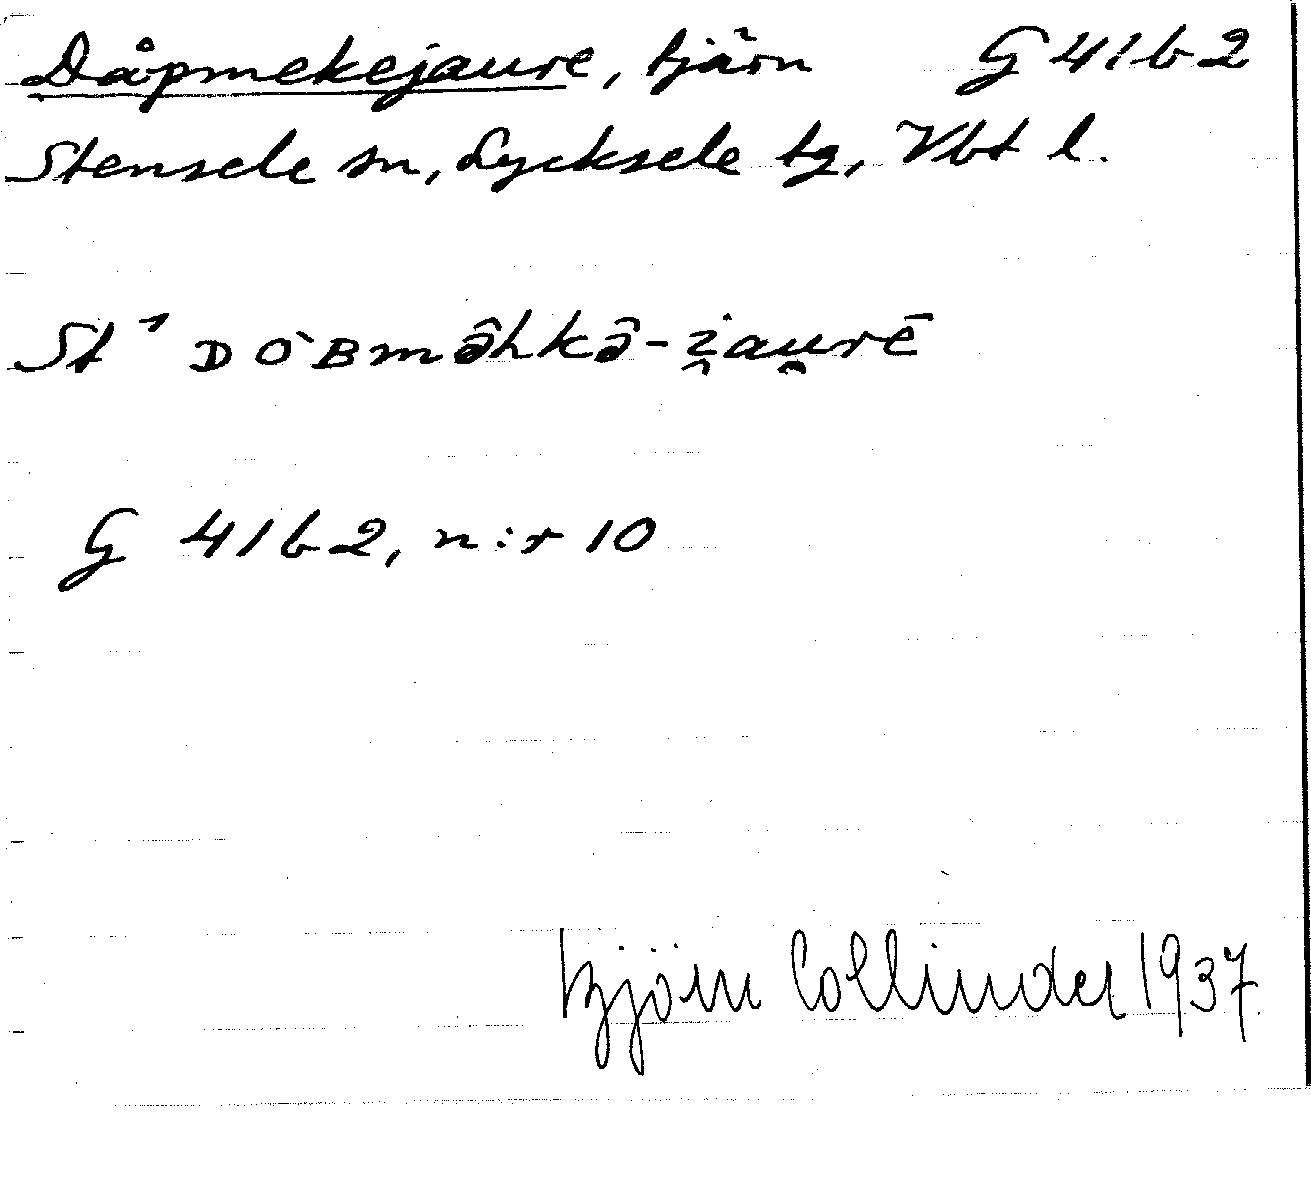 Dåpmekejaure, tjärn G 41 b 2
Stensele sn, Lycksele tg, Vbt l.
St¹ ᴅO`ʙmə̂hkə̂-i̯au̯rē
G 41 b 2, n:r 10
Björn Collinder 1937